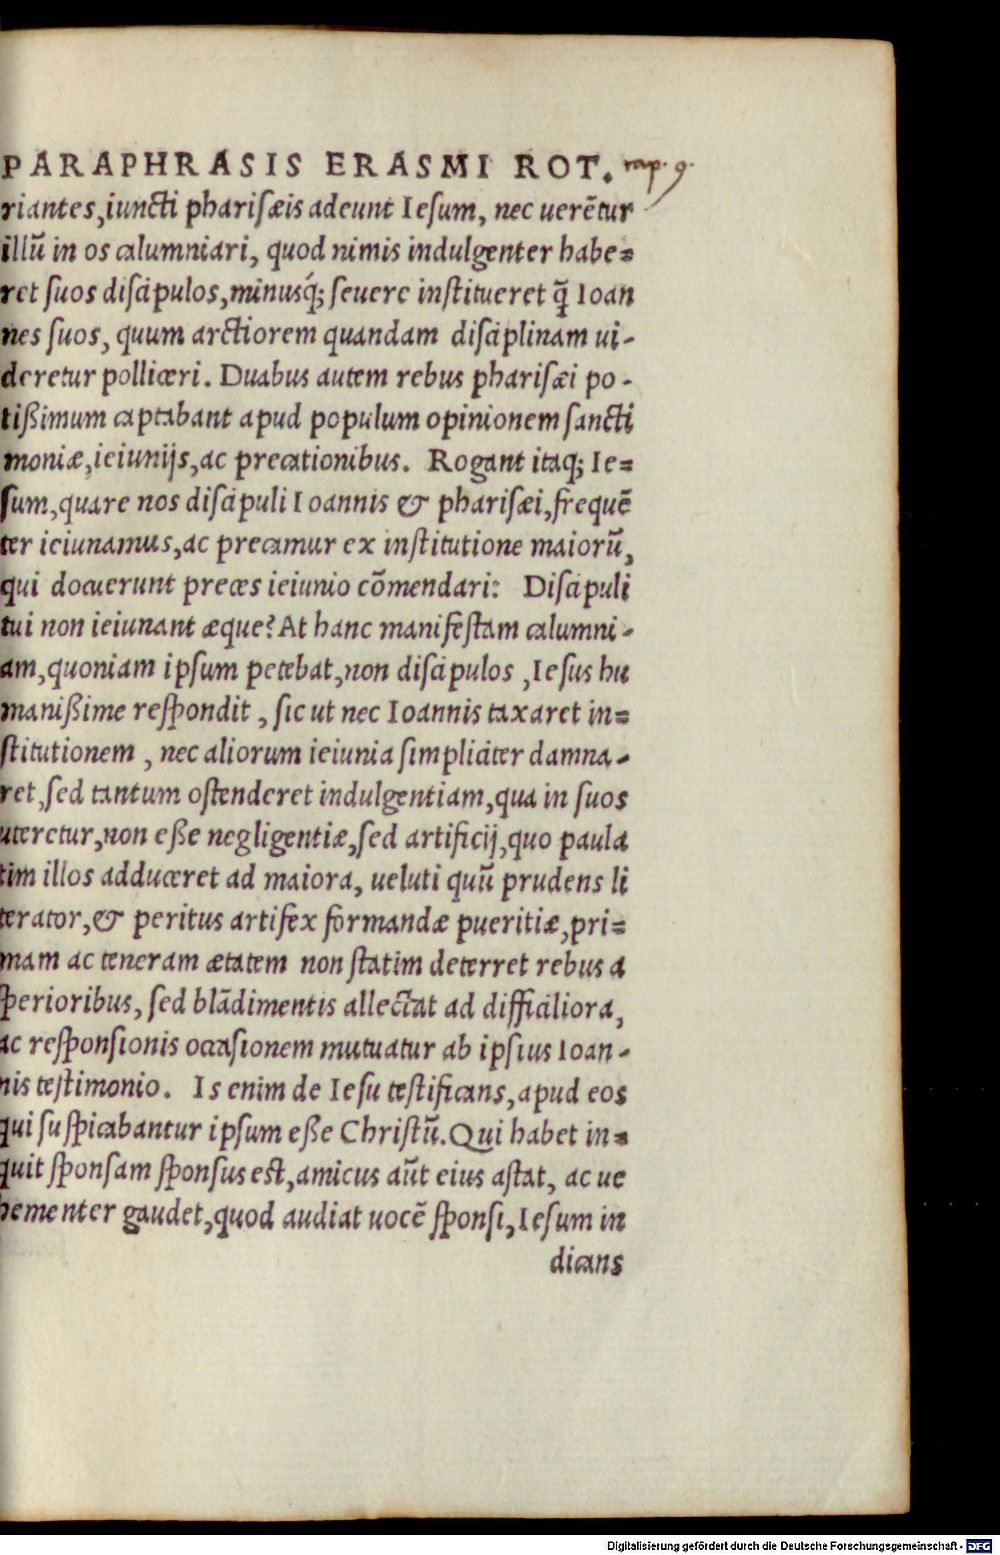 PARAPHRASIS ERASMI ROT. cap. 9.
riantes, iuncti pharisæis adeunt Iesum, nec uerētur
illū in os calumniari, quod nimis indulgenter habe=
ret suos discipulos, minusq́; seuere institueret q̄̃ Ioan
nes suos, quum arctiorem quandam disciplinam ui-
deretur polliceri. Duabus autem rebus pharisæi po-
tißimum captabant apud populum opinionem sancti
moniæ, ieiunijs, ac precationibus. Rogant itaq; Ie=
sum, quare nos discipuli Ioannis & pharisæi, frequē
ter ieiunamus, ac precamur ex institutione maiorū,
qui docuerunt preces ieiunio cōmendari: Discipuli
tui non ieiunant æque? At hanc manifestam calumni-
am, quoniam ipsum petebat, non discipulos, Iesus hu
manißime respondit, sic ut nec Ioannis taxaret in=
stitutionem, nec aliorum ieiunia simpliciter damna-
ret, sed tantum ostenderet indulgentiam, qua in suos
uteretur, non eße negligentiæ, sed artificij, quo paula
tim illos adduceret ad maiora, ueluti quū prudens li
terator, & peritus artifex formandæ pueritiæ, pri=
mam ac teneram ætatem non statim deterret rebus a
sperioribus, sed blādimentis allectat ad difficiliora,
ac responsionis occasionem mutuatur ab ipsius Ioan-
nis testimonio. Is enim de Iesu testificans, apud eos
qui suspicabantur ipsum eße Christū. Qui habet in=
quit sponsam sponsus est, amicus aūt eius astat, ac ue
hementer gaudet, quod audiat uocē sponsi, Iesum in
dicans
Digitalisierung gefördert durch die Deutsche Forschungsgemeinschaft - DFG